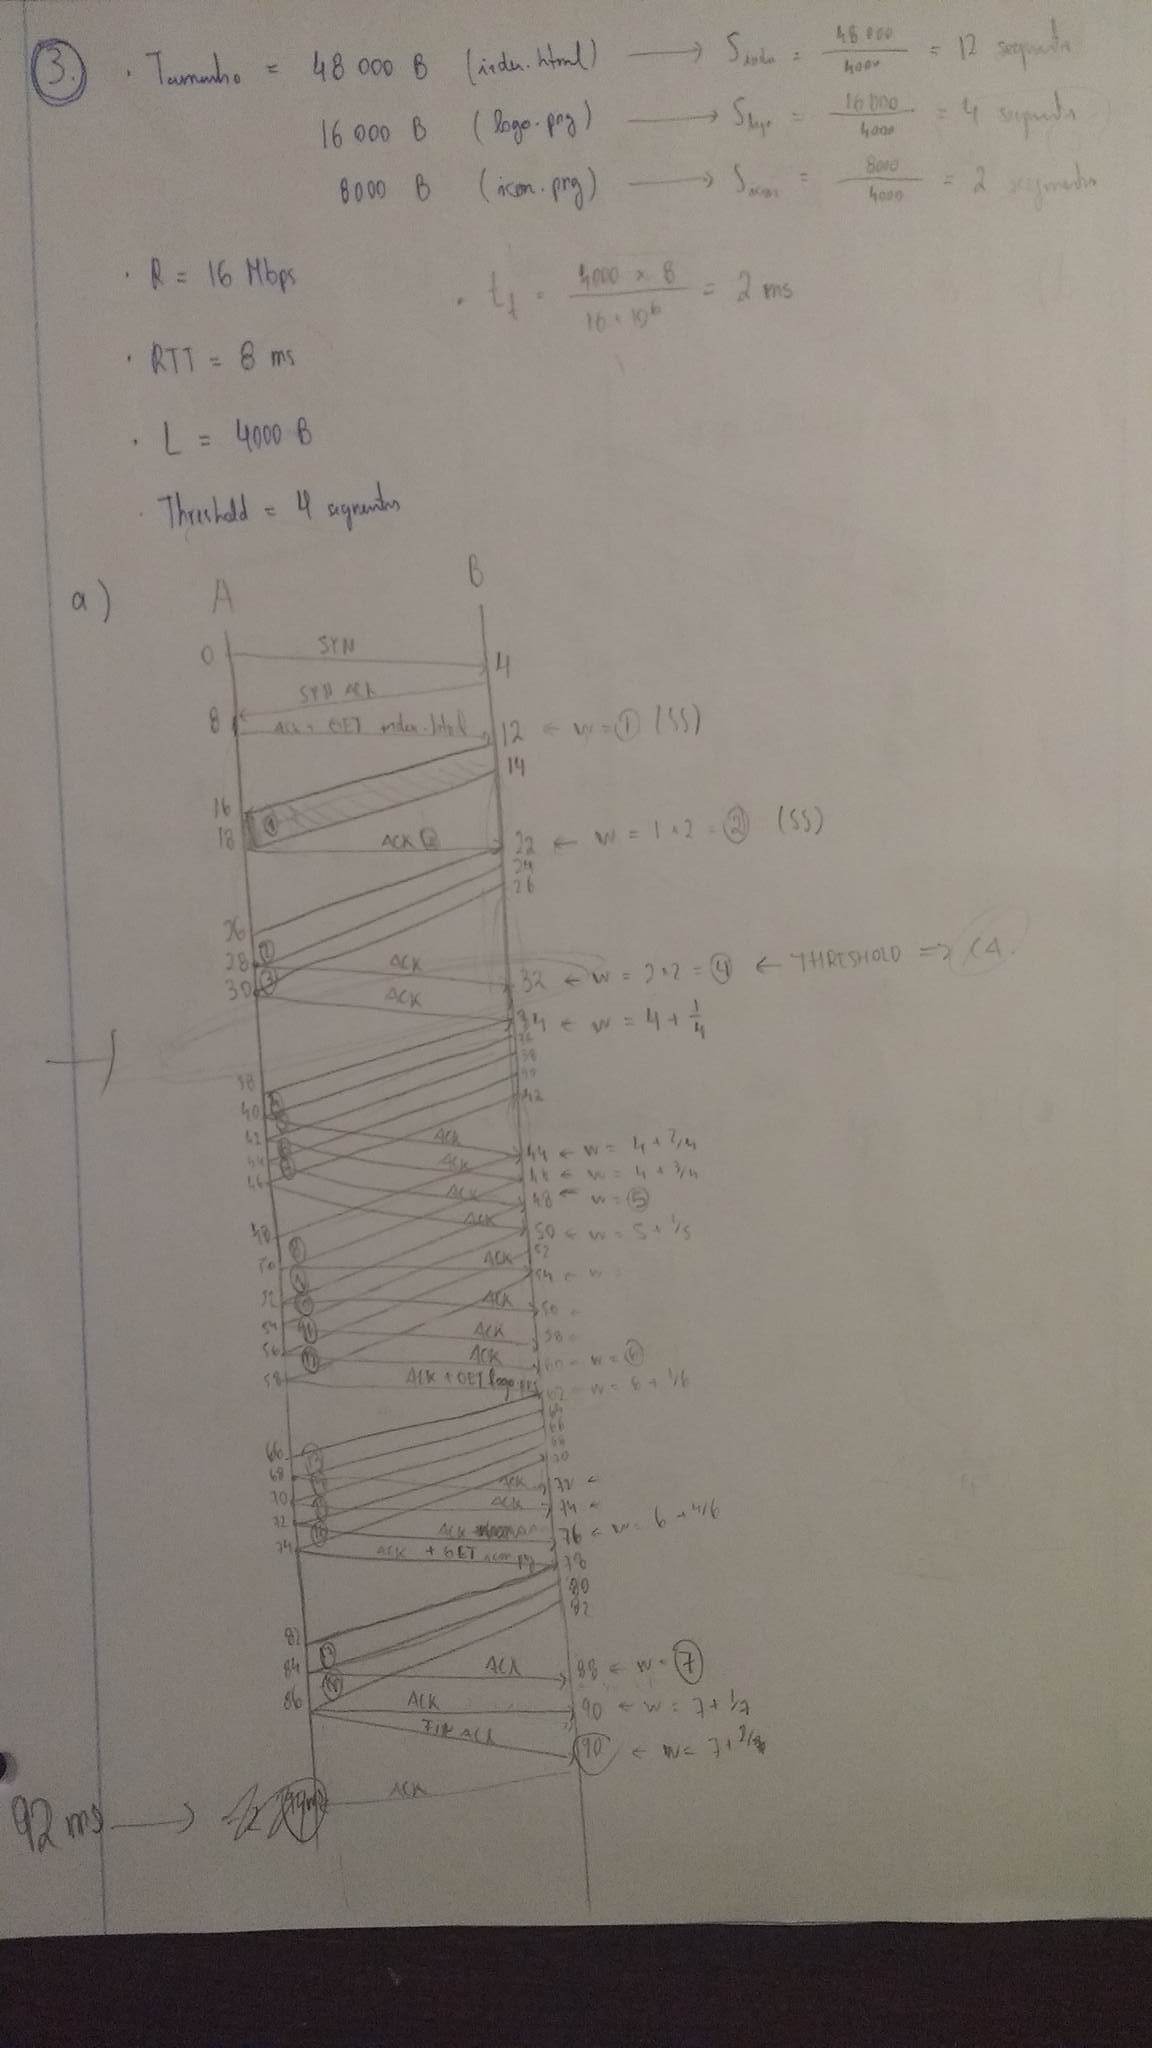 3. · Tamanho = 48 000 B (index.html) → S index = 48 000 / 4000 = 12 segmentos
16 000 B (logo.png) → S logo = 16 000 / 4000 = 4 segmentos
8000 B (icon.png) → S icon = 8000 / 4000 = 2 segmentos
· R = 16 Mbps
· t_f = 4000 × 8 / 16 × 10^6 = 2 ms
· RTT = 8 ms
· L = 4000 B
· Threshold = 4 segmentos
a) A B
0 SYN 4
SYN ACK
8 ACK + GET index.html 12 ← w = 1 (SS)
14
16
18 1 ACK 2 22 ← w = 1×2 = 2 (SS)
24
26
26
28 2 ACK 32 ← w = 2×2 = 4 ← THRESHOLD => CA.
30 3 ACK 34 ← w = 4 + 1/4
36
38
40
42
38
40
42 ACK 44 ← w = 4 + 2/4
44 ACK 46 ← w = 4 + 3/4
46 ACK 48 ← w = 5
ACK 50 ← w = 5 + 1/5
48
52
50 ACK 54 ← w =
52 ACK 56
54 ACK 58
56 ACK 60 ← w = 6
58 ACK + GET logo.png 62 ← w = 6 + 1/6
64
66
68
70
66
68 ACK 72 ←
70 ACK 74 ←
72 ACK 76 ← w = 6 + 4/6
74 ACK + GET icon.png 78
80
82
82
84 ACK 88 ← w = 7
86 ACK 90 ← w = 7 + 1/7
FIN ACK 90 ← w = 7 +
ACK
92 ms →